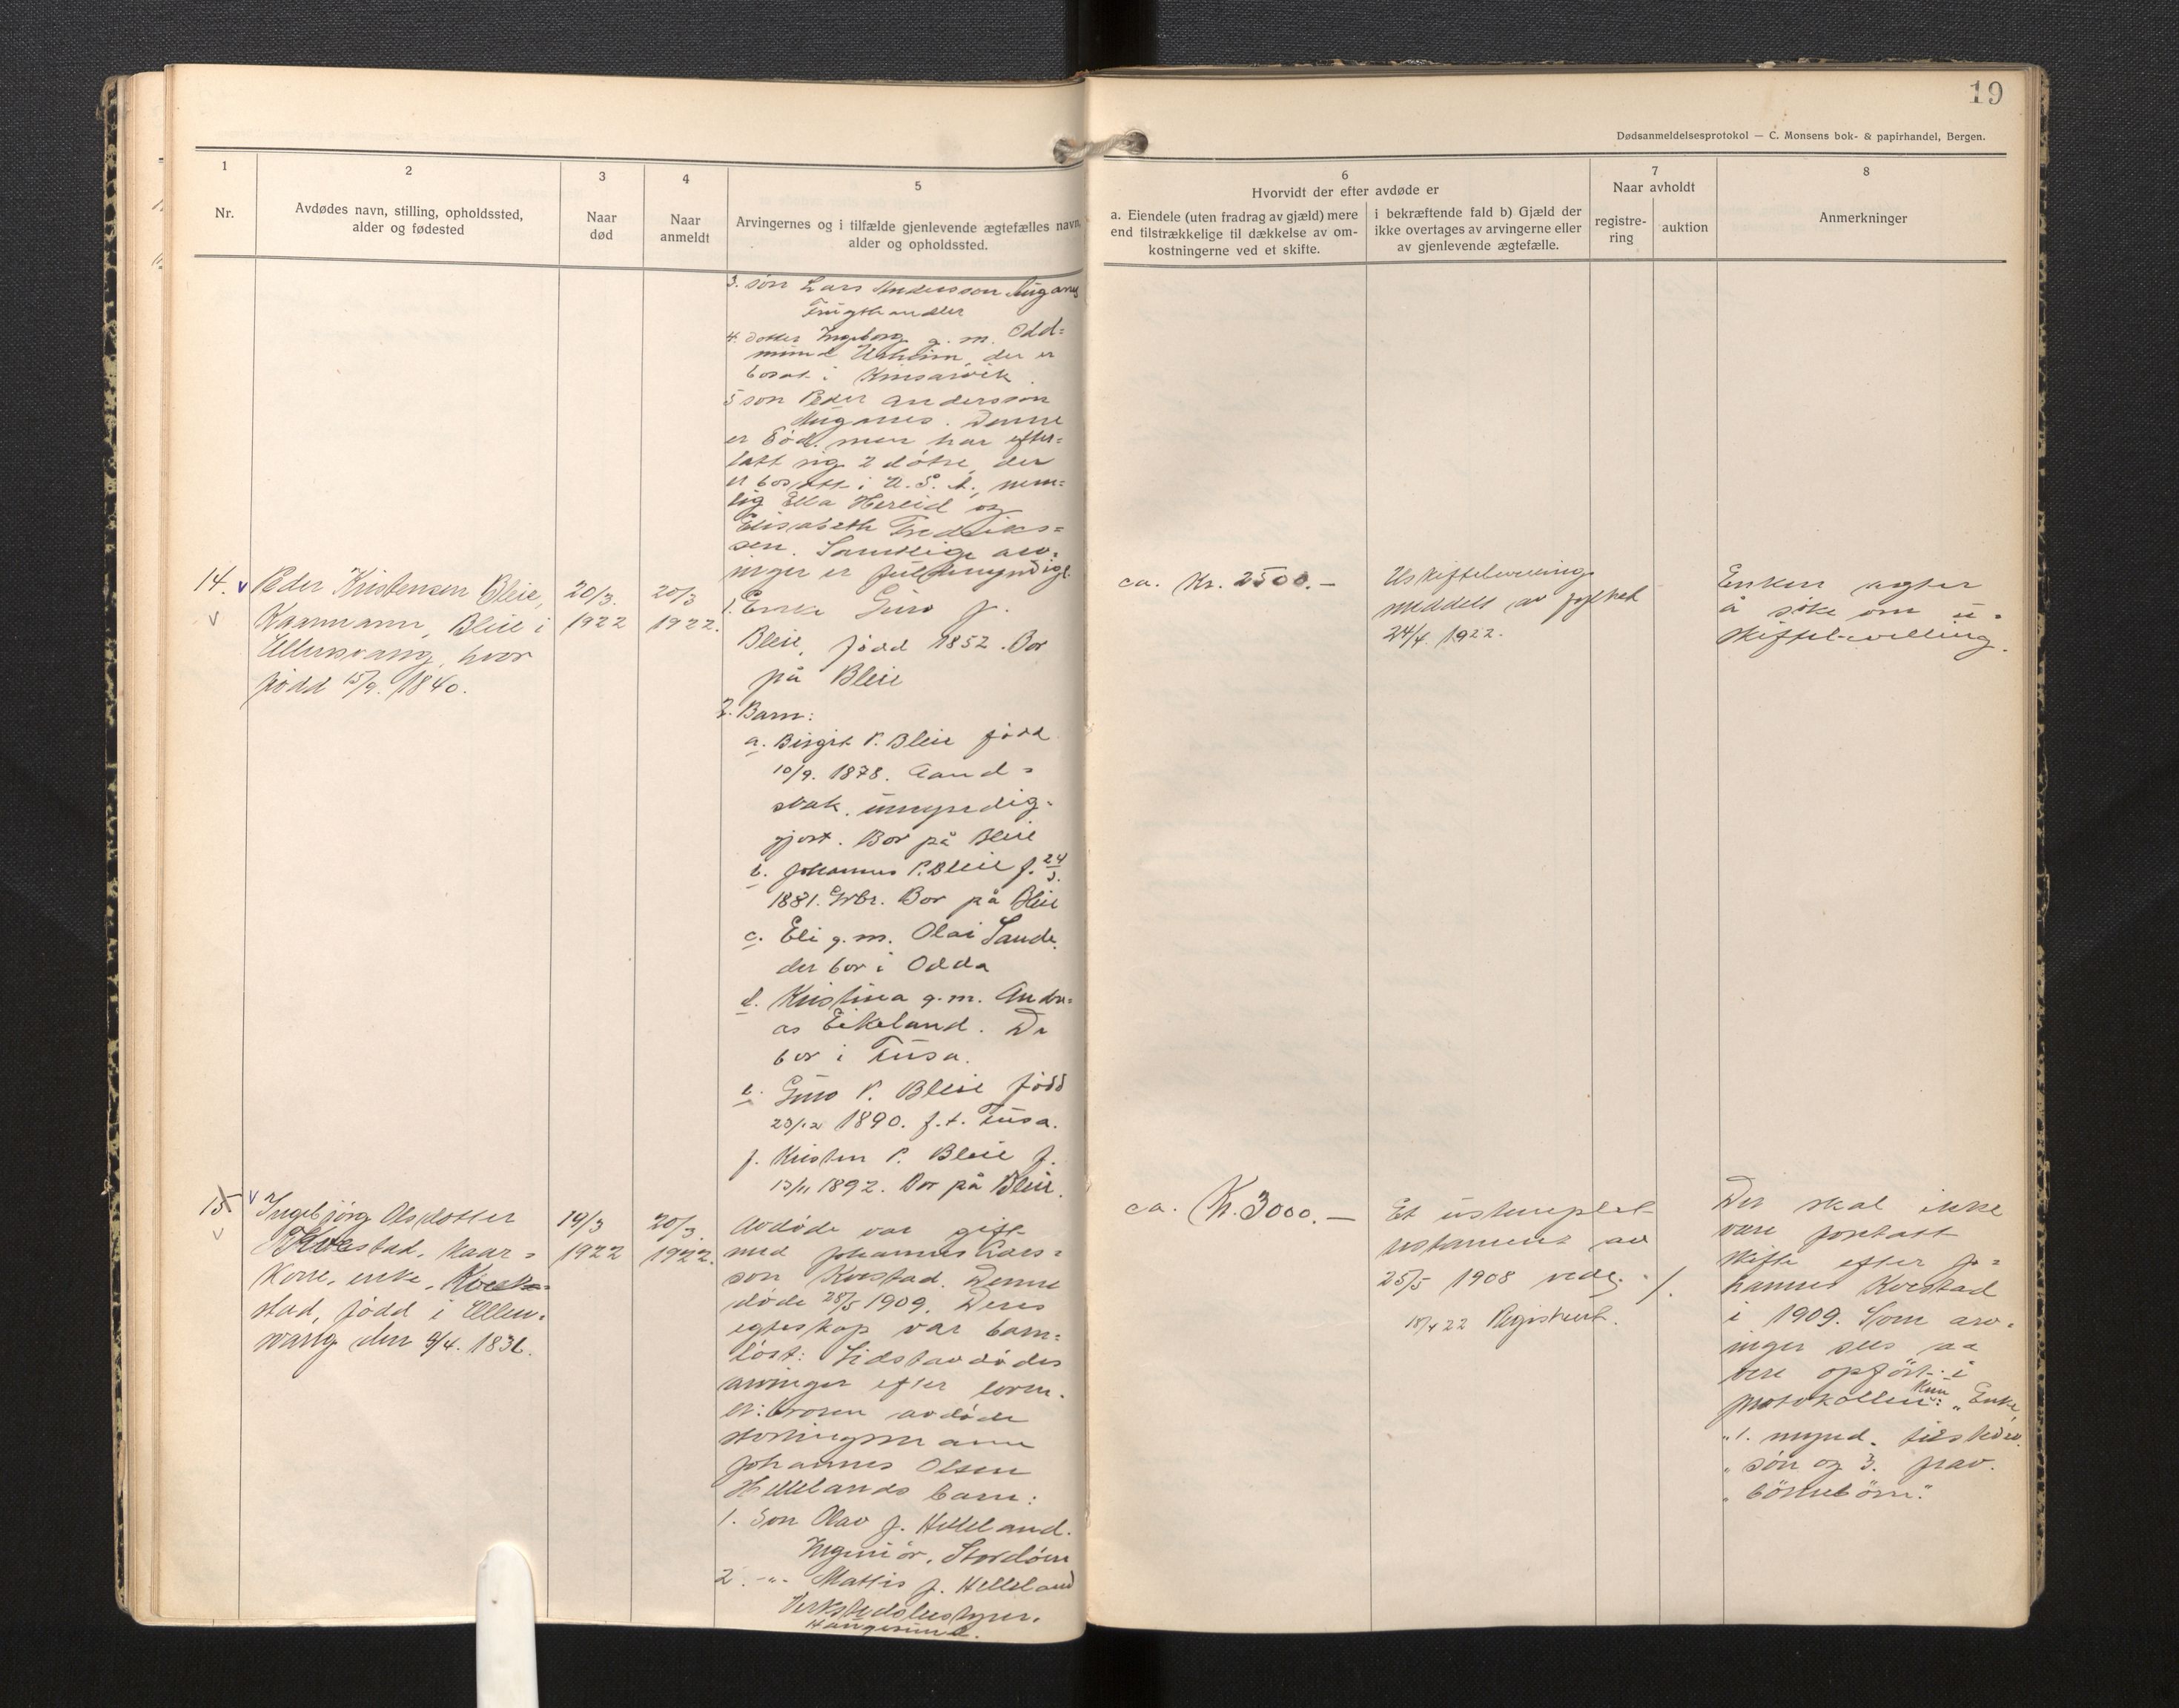 19
Dødsanmeldelsesprotokol — C. Monsens bok- & papirhandel, Bergen.
1
Nr.
2
Avdødes navn, stilling, opholdssted,
alder og fødested
3
Naar
død
4
Naar
anmeldt
5
Arvingernes og i tilfælde gjenlevende ægtefælles navn,
alder og opholdssted.
6
Hvorvidt der efter avdøde er
a. Eiendele (uten fradrag av gjæld) mere
end tilstrækkelige til dækkelse av om-
kostningerne ved et skifte.
i bekræftende fald b) Gjæld der
ikke overtages av arvingerne eller
av gjenlevende ægtefælle.
7
Naar avholdt
registre-
ring
auktion
8
Anmerkninger
3. søn Lars Andersson Auganes
Frugthandler
4. Dotter Ingeborg g. m. Odd=
mund Utheim, der er
bosat i Kinsarvik.
5 søn Peder Andersson
Auganes. Denne
er död. men har efter=
latt sig 2 dötre, der
er bosatt i U. S. A., nem=
lig Ella Hereid og
Elisabeth Fredriks=
sen. Samtlige arv.
inger er fuldmyndige.
14.
Peder Kristensen Bleie,
Kaarmann, Bleie i
Ullensvang, hvor
född 15/9. 1840.
20/3.
1922
20/3
1922.
1. Enke Guro J.
Bleie, född 1852. Bor
på Bleie
2. Barn:
a. Birgit P. Bleie född
10/9. 1878. Aand=
svak, umyndig-
gjort. Bor på Bleie
b. Johannes P. Bleie f. 24/3.
1881. Grbr. Bor på Bleie
c. Eli g. m. Olai Sande,
der bor i Odda
d. Kristina g. m. Andre=
as Eikeland. De
bor i Fusa.
e. Guro P. Bleie född
23/12 1890. f. t. Fusa.
f. Kristen P. Bleie f.
13/11 1892. Bor på Bleie.
ca. Kr. 2500.—
Uskiftebevilling
meddelt av fylket
24/4. 1922.
Enken agter
å söke om u-
skiftebevilling.
15
Ingebjörg Olsdotter
Kvestad, kaar=
kone, enke,
stad, född i Ullens-
vang den 9/4. 1836.
19/3
1922
20/3.
1922.
Avdöde var gift
med Johannes Lars=
son Kvestad. Denne
döde 28/5 1909. Deres
egteskap var barn=
löst: Sidstavdödes
arvinger efter loven
er: broren avdöde
stortingsmann
Johannes Olsen
Hellelands barn:
1. Søn Olav J. Helleland.
Ingeniör, Stordöen
2. -"- Mattis J. Helleland
Verkstedsbestyrer.
Haugesund.
ca. Kr. 3000.—
Et ustemplet
testament av
25/5 1908 vedl.
18/4 22 Registrert.
/.
Der skal ikke
være foretatt
skifte efter Jo=
hannes Kvestad
i 1909. Som arv-
inger sees aa
være opfört i
protokollen kun: „Enke,
„1. mynd.
„ sön og 3. frav.
„ börnebörn."